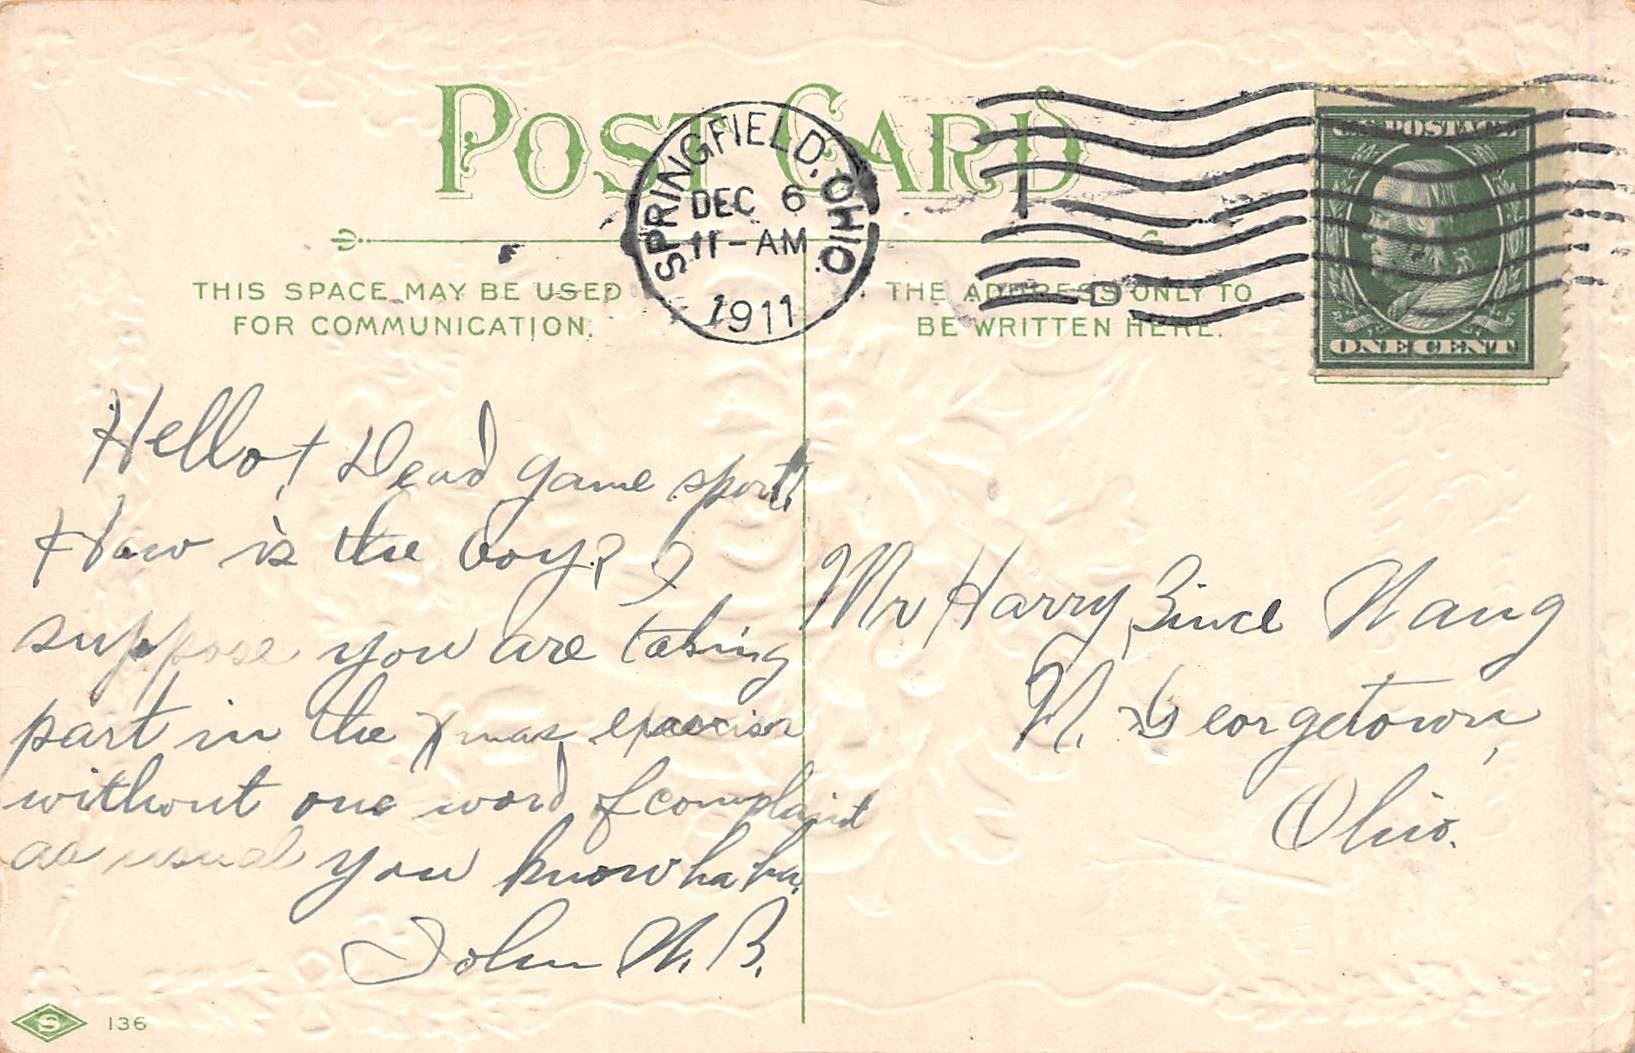 POST CARD
SPRINGFIELD, OHIO.
DEC 6
11-AM
1911
U.S. POSTAGE
ONE CENT
THIS SPACE MAY BE USED
FOR COMMUNICATION.
THE ADDRESS ONLY TO
BE WRITTEN HERE.
Hello! Dead game sport!
How is the boy? I
suppose you are taking
part in the Xmas
without one word of complaint
as usual you know ha ha.
John W. B.
Mr Harry Wang
N. Georgetown,
Ohio.
S 136